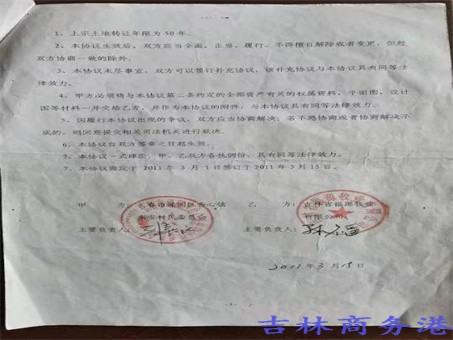 1、上宗土地转让年限为 50 年。
2、本协议生效后，双方应当全面、正当、履行，不得擅自解除或者变更，但经
双方协商一致的除外。
3、本协议未尽事宜，双方可以签订补充协议，该补充协议与本协议具有同等法
律效力。
4、甲方必须将与本协议第二条约定的全部资产有关的权属资料、平面图、设计
图等材料一并交给乙方，并作为本协议的附件，与本协议具有同等法律效力。
5、因履行本协议出现的争议，双方应当协商解决；若不愿协商或者协商解决不
成的，则应提交相关司法机关进行裁决。
6、本协议自双方签章之日起生效。
7、本协议一式肆份，甲、乙双方各执贰份，具有同等法律效力。
本协议 2011 年 3 月 签订于 2011 年 3 月 15 日。
甲 方：长春市 区 心镇
乙 方：吉林省 牧业
村民委员
有限公司
主要负责人：
主要负责人：
2011年3月15日
吉林商务港